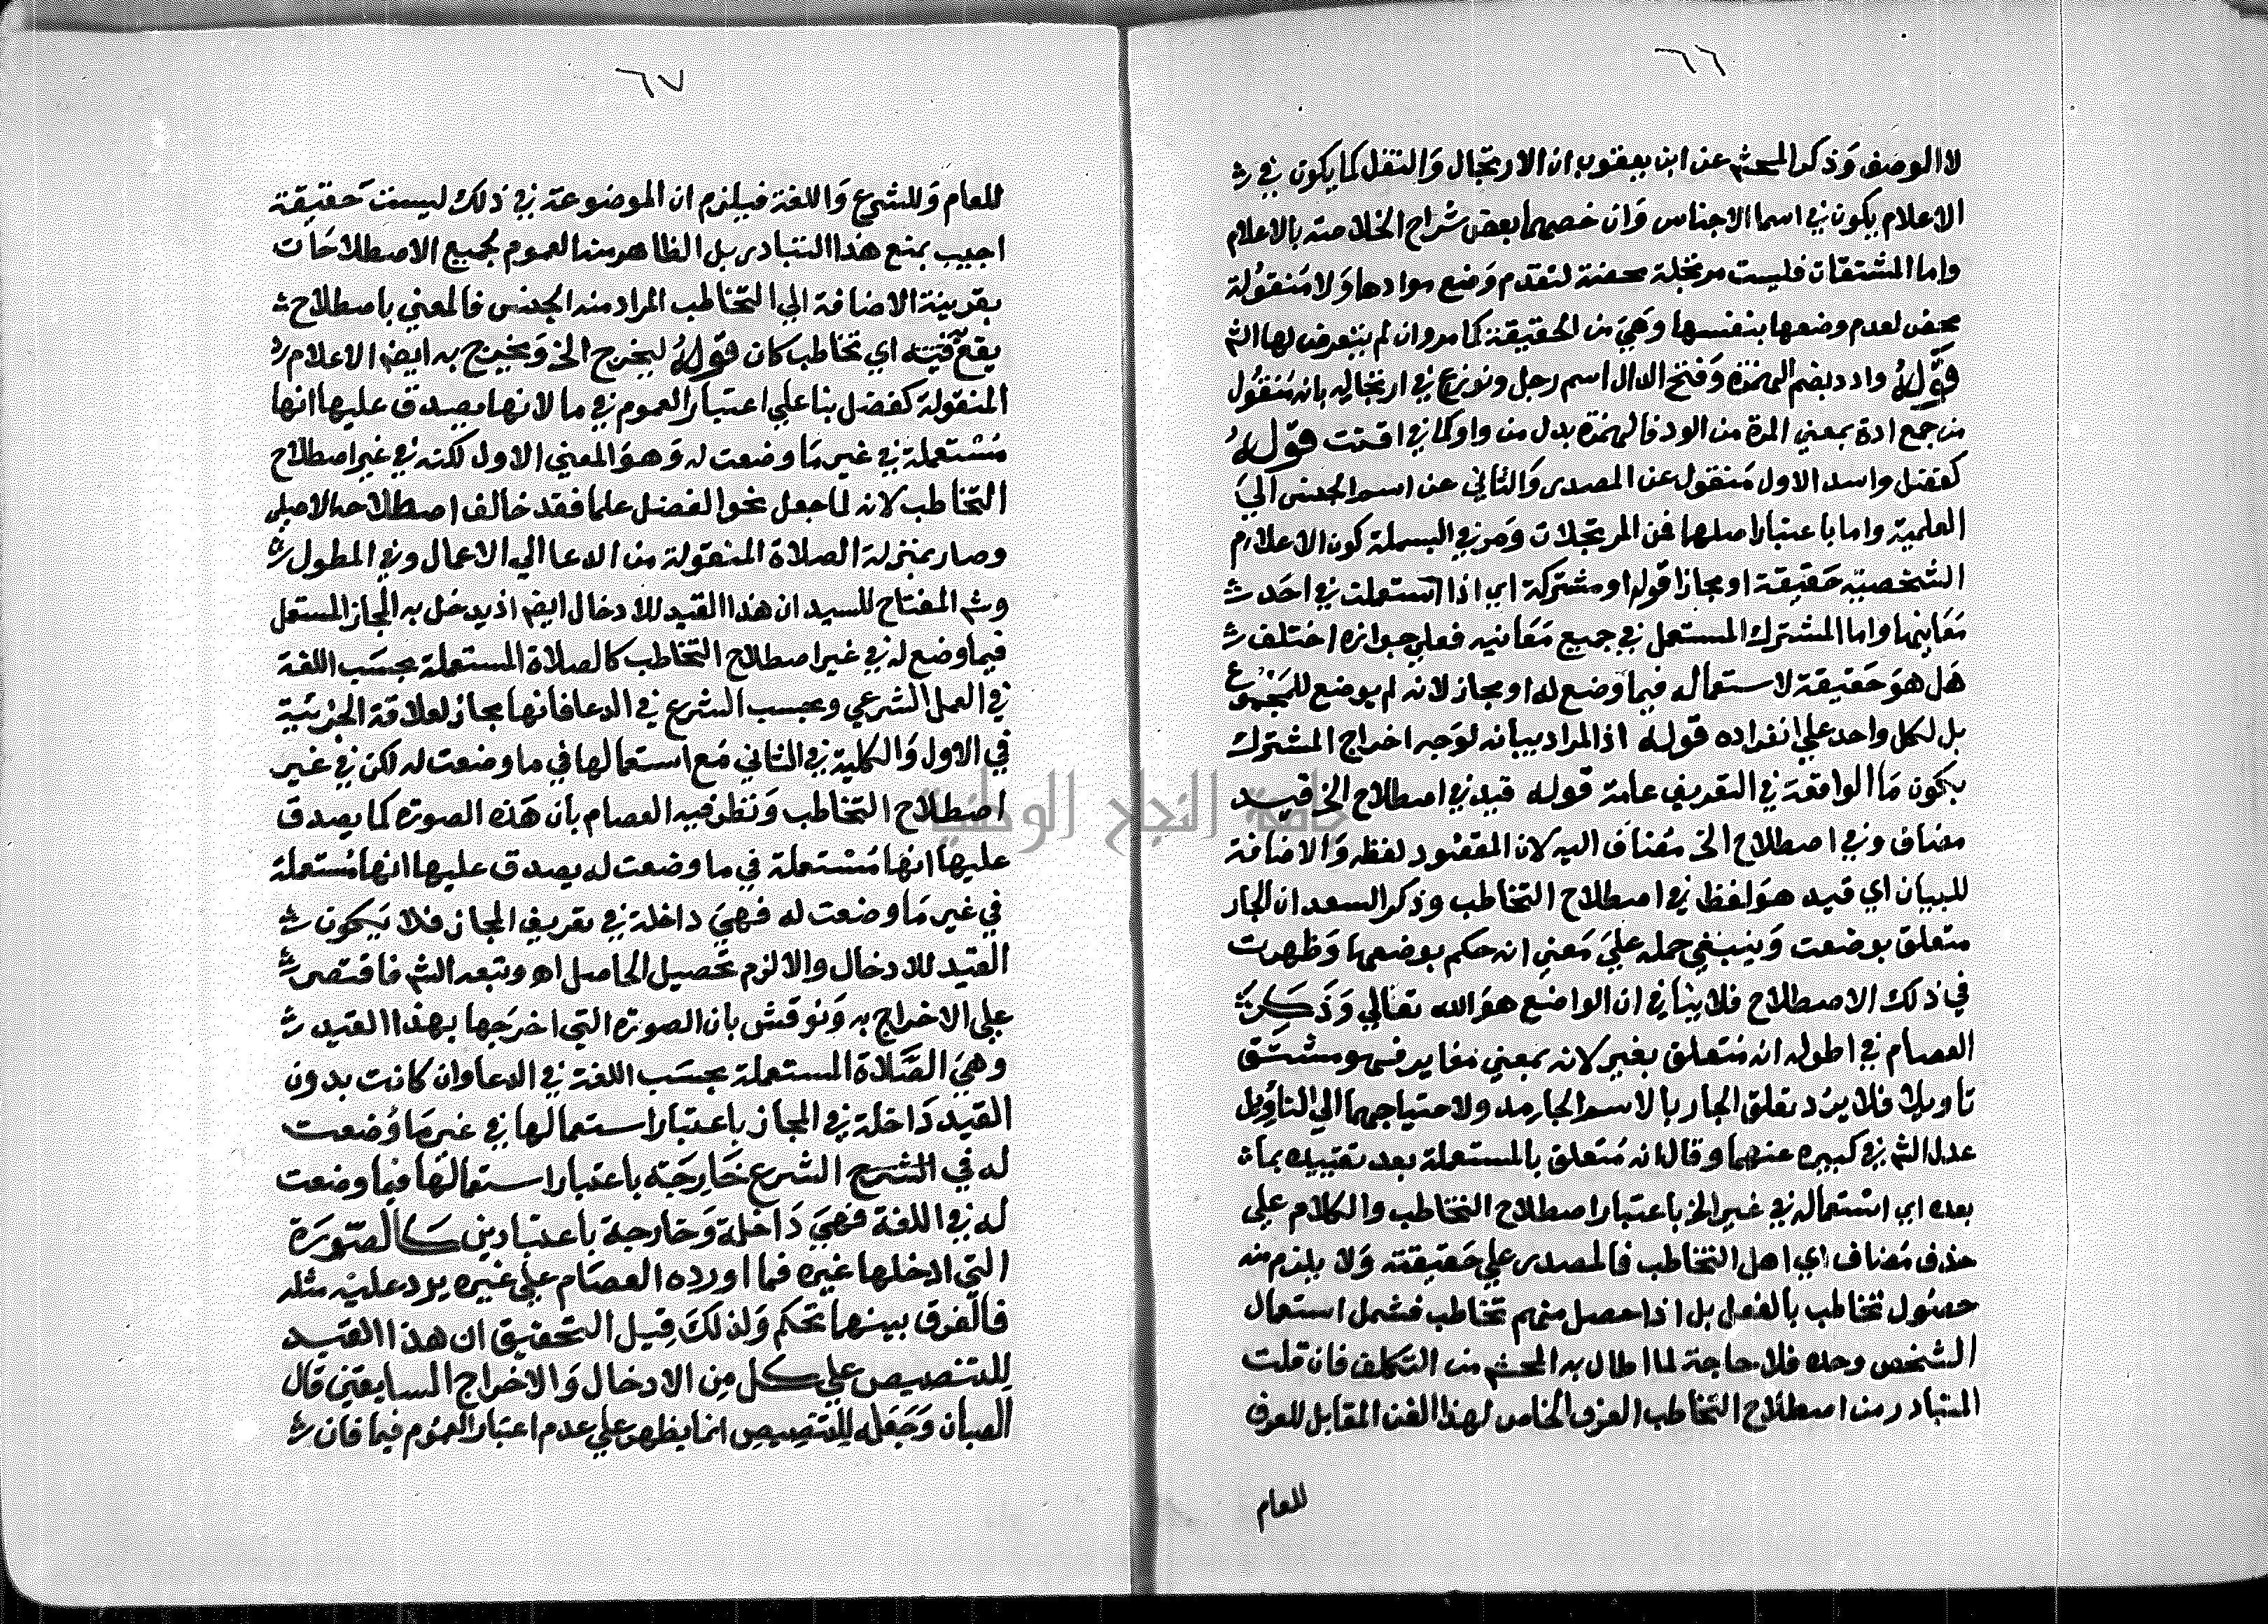 ٦٦
لا الوصف وَذكر المحشي عن ابن يعقوب ان الارتجال وَالنقل كما يكون في
الاعلام يكون في اسما الاجناس وَان خصهما بعض شراح الخلاصة بالاعلام
واما المشتقات فليست مرتجلة محضة لتقدم وَضع موادها وَلا مَنقولة
محض لعدم وضعها بنفسها وَهيَ من الحقيقة كما مر وان لم يتعرض لها الشم
قَولهُ وادد بضم الهمزة وَفتح الدال اسم رجل ونوزع في ارتجاله بانه مَنقُول
من جمع ادة بمعني المرة من الود فالهمزة بدل من واو كما في اقتت قَولهُ
كفضل واسد الاول مَنقول عن المصدر وَالثاني عن اسم الجنس اليَ
العلمية واما باعتبار اصلها فمن المرتجلات وَمر في البسملة كون الاعلام
الشخصية حَقيقة او مجازا قوله او مشتركة اي اذا استعملت في احَد
مَعَانيها واما المشترك المستعمل في جميع مَعَانيه فعلي جوازه اختلف
هَل هوَ حَقيقة لاستعماله فيما وَضع له او مجاز لانه لم يوضع للمَجموع
بل لكل واحد علي انفراده قوله اذ المراد بيانه لوَجه اخراج المشترك
بكون مَا الواقعة في التعريف عامة قوله قيد في اصطلاح الخ قيد
مضاف وفي اصطلاح الخ مُضاف اليه لان المقصُود لفظه وَالاضافة
للبيان اي قيد هوَ لفظ في اصطلاح التخاطب وذكر السعد ان الجار
متعلق بوضعت وَينبغي حمله عليَ مَعني انه حكم بوضعها وَظهرت
في ذلك الاصطلاح فلا ينافي ان الواضع هوَ الله تعالي وَذَكر
العصام في اطوله انه مُتعلق بغير لانه بمعني مغاير فهو مشتق
تاويلا فلا يرُد تعلق الجار بالاسم الجامد ولاحتياجهما الي التاوِيل
عدل الشم في كبيره عنهما وقال انه مُتعلق بالمستعملة بعد تقييده بما
بعده اي استعماله في غير الخ باعتبار اصطلاح التخاطب والكلام علي
حذف مُضاف اي اهل التخاطب فالمصدر علي حَقيقته وَلا يلزم منه
حصُول تخاطب بالفعل بل اذا حصل منهم تخاطب فشمل استعمال
الشخص وحده فلا حاجة لما اطال به المحشي من التكلف فان قلت
المتبادر من اصطلاح التخاطب العرف الخاص لهذا الفن المقابل للعرف
للعام
٦٧
للعام وَللشرع وَاللغة فيلزم ان الموضوعة في ذلك ليست حَقيقة
اجيب بمنع هذا التبادر بل الظاهر منه العموم لجميع الاصطلاحَات
بقرينة الاضافة الي التخاطب المراد منه الجنس فالمعني باصطلاح
يقع فيه اي تخاطب كان قَولهُ ليخرج الخ وَيخرج به ايضا الاعلام
المنقولة كفضل بنا علي اعتبار العموم في ما لانها يصدق عليها انها
مُستعملة في غير مَا وضعت له وَهوَ المعني الاول لكنه في غير اصطلاح
التخاطب لانه لما جعل نحو الفضل علما فقد خالف اصطلاحه الاصلي
وصار بمنزلة الصلاة المنقولة من الدعا الي الاعمال وفي المطول
وشم المفتاح للسيد ان هذا القيد للادخال ايضا اذ يدخل به المجاز المستعمل
فيما وضع له في غير اصطلاح التخاطب كالصلاة المستعملة بحسَب اللغة
في العمل الشرعي وبحسب الشرع في الدعا فانها مجاز لعلاقة الجزئية
في الاول وَالكلية في الثاني مَع استعمالها في ما وضعت له لكن في غير
اصطلاح التخاطب وَنظر فيه العصام بان هَذه الصورة كما يصدق
عليها انها مُستعملة في ما وضعت له يصدق عليها انها مُستعملة
في غير مَا وضعت له فهيَ داخلة في تعريف المجاز فلا يَكون
القيد للادخال والا لزم تحصيل الحاصل اه وتبعه الشم فاقتصر
علي الاخراج به وَنوقش بان الصورة التي اخرَجها بهذا القيد
وهيَ الصَّلاة المستعملة بحسَب اللغة في الدعا وان كانت بدون
القيد دَاخلة في المجاز باعتبار استعمالها في غير مَا وُضعت
له في الشرح الشرع خَارجَة باعتبار استعمالهَا فيما وضعت
له في اللغة فهيَ دَاخلة وَخارجة باعتبارين كالصّورَة
التي ادخلها غيره فما اورده العصَام علي غيره يرد عليه مثله
فالفرق بينهما تحكم وَلذلكَ قيل التحقيق ان هذا القيد
للتنصيص علي كل مِن الادخال وَالاخراج السابقين قال
الصبان وَجَعله للتنصيص انما يظهر علي عدم اعتبار العمُوم فيما فان
جامعة النجاح الوطنية